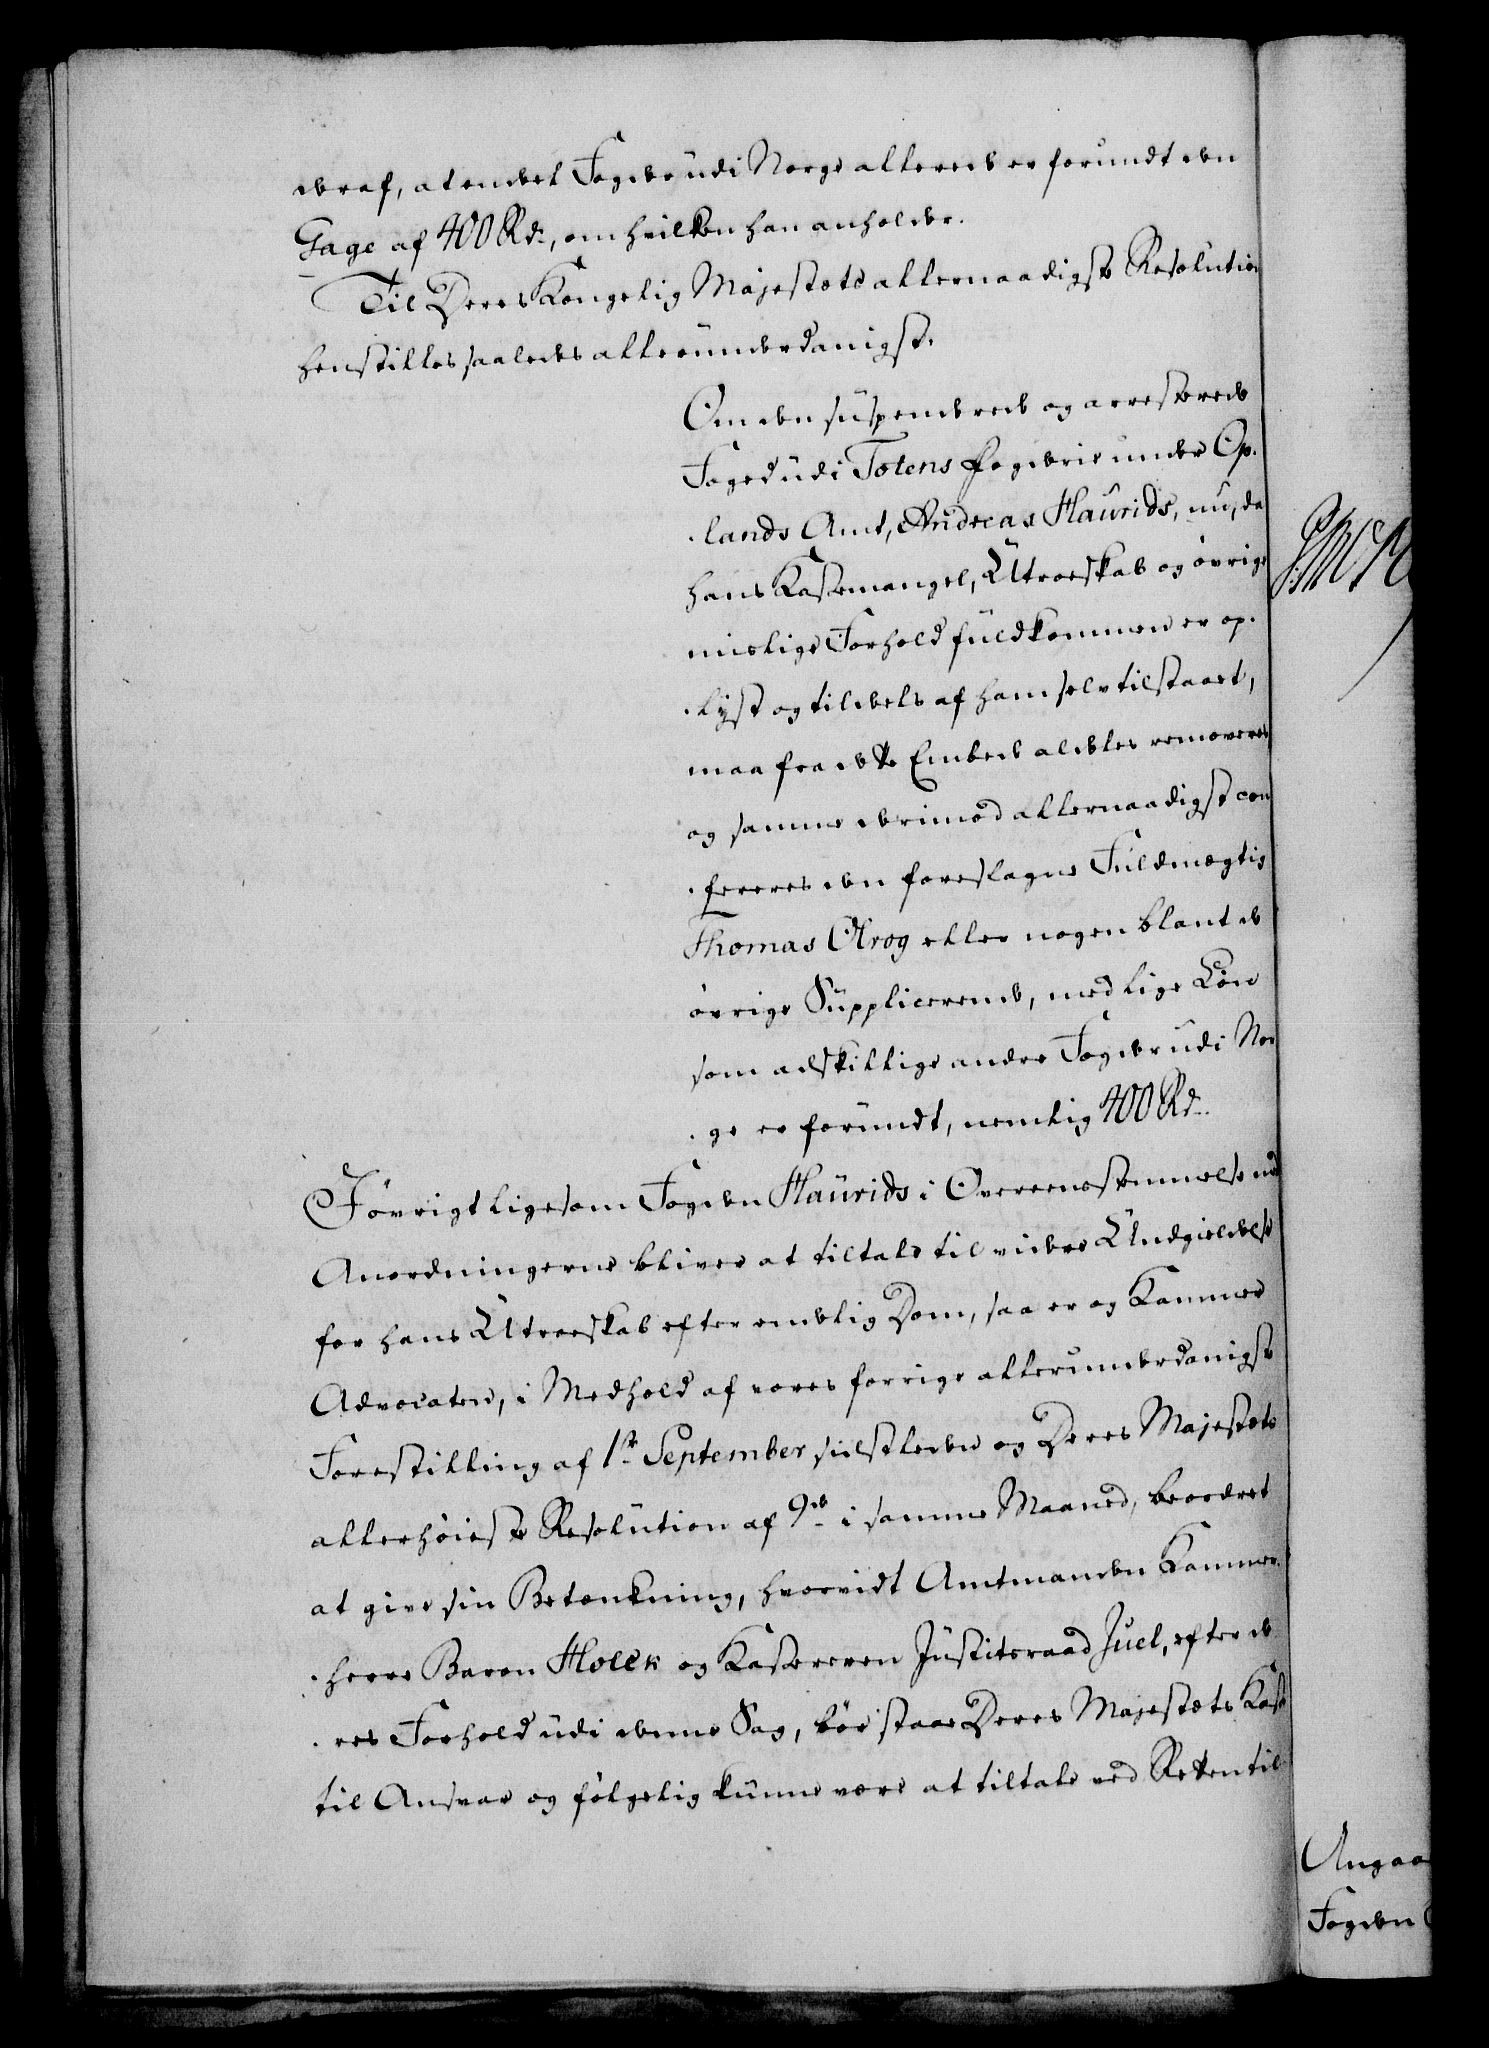 deraf, at endeel Fogder udi Norge allerede er forundt den
Gage af 400 Rd:, om hvilken han anholder.
Til Deres Kongelig Majestets allernaadigste Resolution
henstilles saaledes allerunderdanigst.
Om den suspenderede og arresterede
Foged udi Totens Fogderie under Op-
lands Amt, Andreas Haurids, nu, da
hans Kassemangel, Utroeskab og øvrige
mislige Forhold fuldkommen er op-
lyst og tildeels af ham selv tilstaaet,
maa fra dette Embede aldeles removeres
og samme derimod allernaadigst con
fereres den foreslagne Fuldmægtig
Thomas Olrog eller nogen blant de
øvrige Supplicerende, med lige Løn
som adskillige andre Fogder udi Nor
ge er forundt, nemlig 400 Rd:.
Iøvrigt ligesom Fogden Haurids i Overeensstemmelse med
Anordningerne bliver at tiltale til videre Undgieldelse
for hans Utroeskab efter endelig Dom, saa er og Kammer
Advocaten, i Medhold af vores forrige allerunderdanigste
Forestilling af 1ste September sidstleden og Deres Majestets
allerhøieste Resolution af 9de i samme Maaned, beordret
at give sin Betænkning, hvorvidt Amtmanden Kammer-
herre Baron Holck og Kassereren Justitsraad Juel, efter de
res Forhold udi denne Sag, bør staae Deres Majestets Kasse
til Ansvar og følgelig kunne være at tiltale ved Retten til
Angaa
Fogden